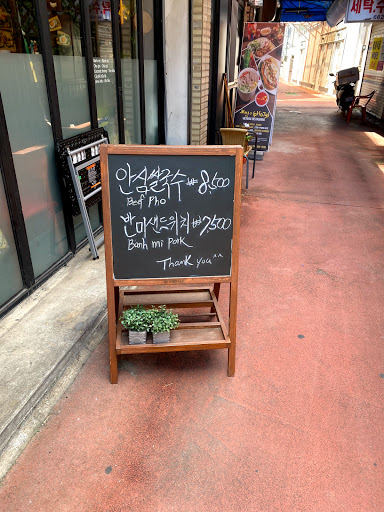 안심쌀국수 ₩8,500
Beef Pho
반미샌드위치 ₩7,500
Banh mi Pork
Thank you^^
세탁